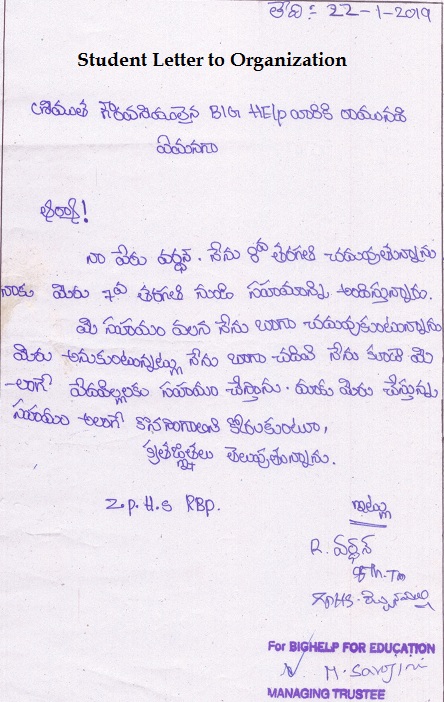 తేది :- 22-1-2019
Student Letter to Organization
శ్రీయుత గౌరవనీయులైన BIG HELP వారికి రాయునది
ఏమనగా
సార్!
నా పేరు వర్ధన్. నేను 8వ తరగతి చదువుతున్నాను
నాకు మీరు 7వ తరగతి నుండి సహాయాన్ని అందిస్తున్నారు.
మీ సహాయం వలన నేను బాగా చదువుకుంటున్నాను
మీరు అనుకుంటున్నట్లు నేను బాగా చదివి నేను కూడా మీ
లాగే పేదపిల్లలకు సహాయం చేస్తాను. మాకు మీరు చేస్తున్న
సహాయం అలాగే కొనసాగాలని కోరుకుంటూ,
కృతజ్ఞతలు తెలుపుతున్నాను.
Z.P.H.S RBP.
ఇట్లు
R. వర్ధన్
8th - TM
ZPHS -
For BIGHELP FOR EDUCATION
M. Sarojini
MANAGING TRUSTEE